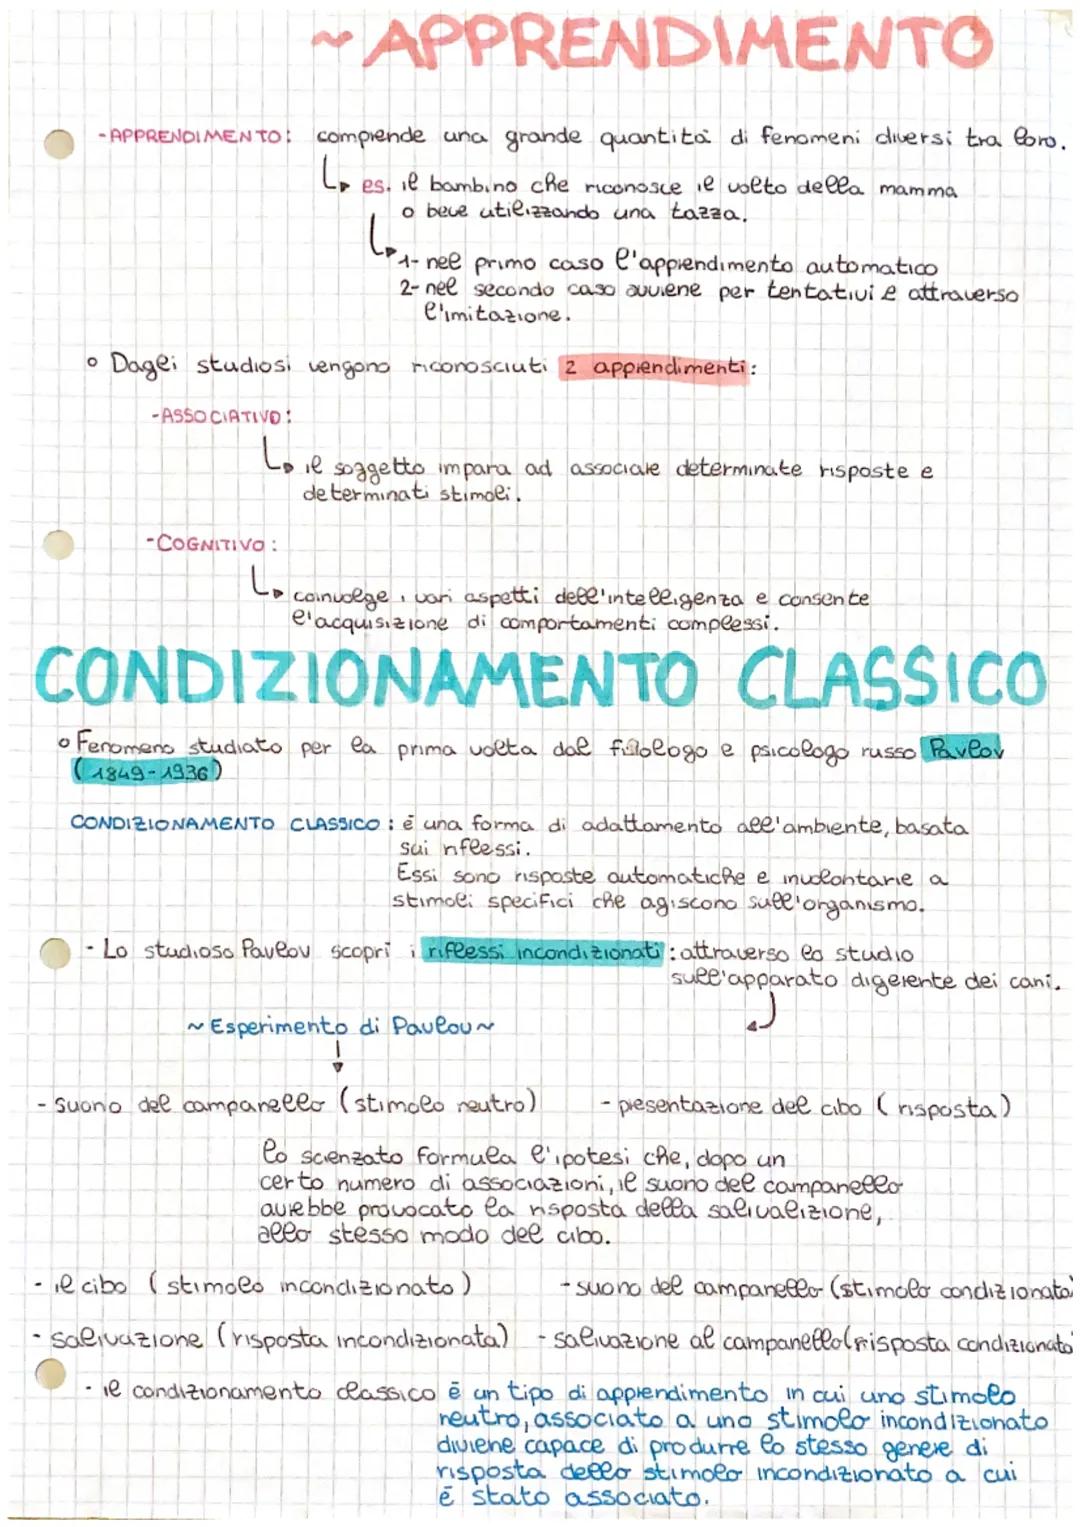 ~ APPRENDIMENTO
- APPRENDIMENTO: comprende una grande quantità di fenomeni diversi tra loro.
es. il bambino che riconosce il volto della mamma
o beve utilizzando una tazza.
1- nel primo caso l'apprendimento automatico
2- nel secondo caso avviene per tentativi e attraverso
l'imitazione.
Dagli studiosi vengono riconosciuti 2 apprendimenti:
- ASSOCIATIVO:
il soggetto impara ad associare determinate risposte e
determinati stimoli.
- COGNITIVO:
coinvolge i vari aspetti dell'intelligenza e consente
l'acquisizione di comportamenti complessi.
CONDIZIONAMENTO CLASSICO
Fenomeno studiato per la prima volta dal e psicologo russo Pavlov
(1849-1936)
CONDIZIONAMENTO CLASSICO: è una forma di adattamento all'ambiente, basata
sui riflessi.
Essi sono risposte automatiche e involontarie a
stimoli specifici che agiscono sull'organismo.
- Lo studioso Pavlov scoprì i riflessi incondizionati: attraverso lo studio
sull'apparato digerente dei cani.
~ Esperimento di Pavlov ~
- suono del campanello (stimolo neutro) - presentazione del cibo (risposta)
lo scienzato formula l'ipotesi che, dopo un
certo numero di associazioni, il suono del campanello
avrebbe provocato la risposta della salivalizione,
allo stesso modo del cibo.
- il cibo (stimolo incondizionato) - suono del campanello (stimolo condizionato)
- salivazione (risposta incondizionata) - salivazione al campanello (risposta condizionata
- il condizionamento classico è un tipo di apprendimento in cui uno stimolo
neutro, associato a uno stimolo incondizionato
diviene capace di produrre lo stesso genere di
risposta dello stimolo incondizionato a cui
è stato associato.